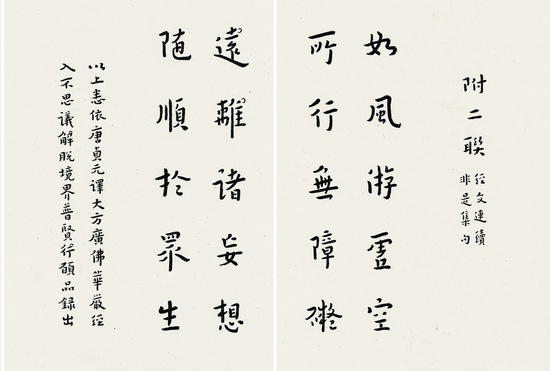 附二聯
經文連續
非是集句
如風游虛空
所行無障礙
遠離諸妄想
随順於眾生
以上悉依唐貞元譯大方廣佛華嚴經
入不思議解脱境界普賢行願品録出